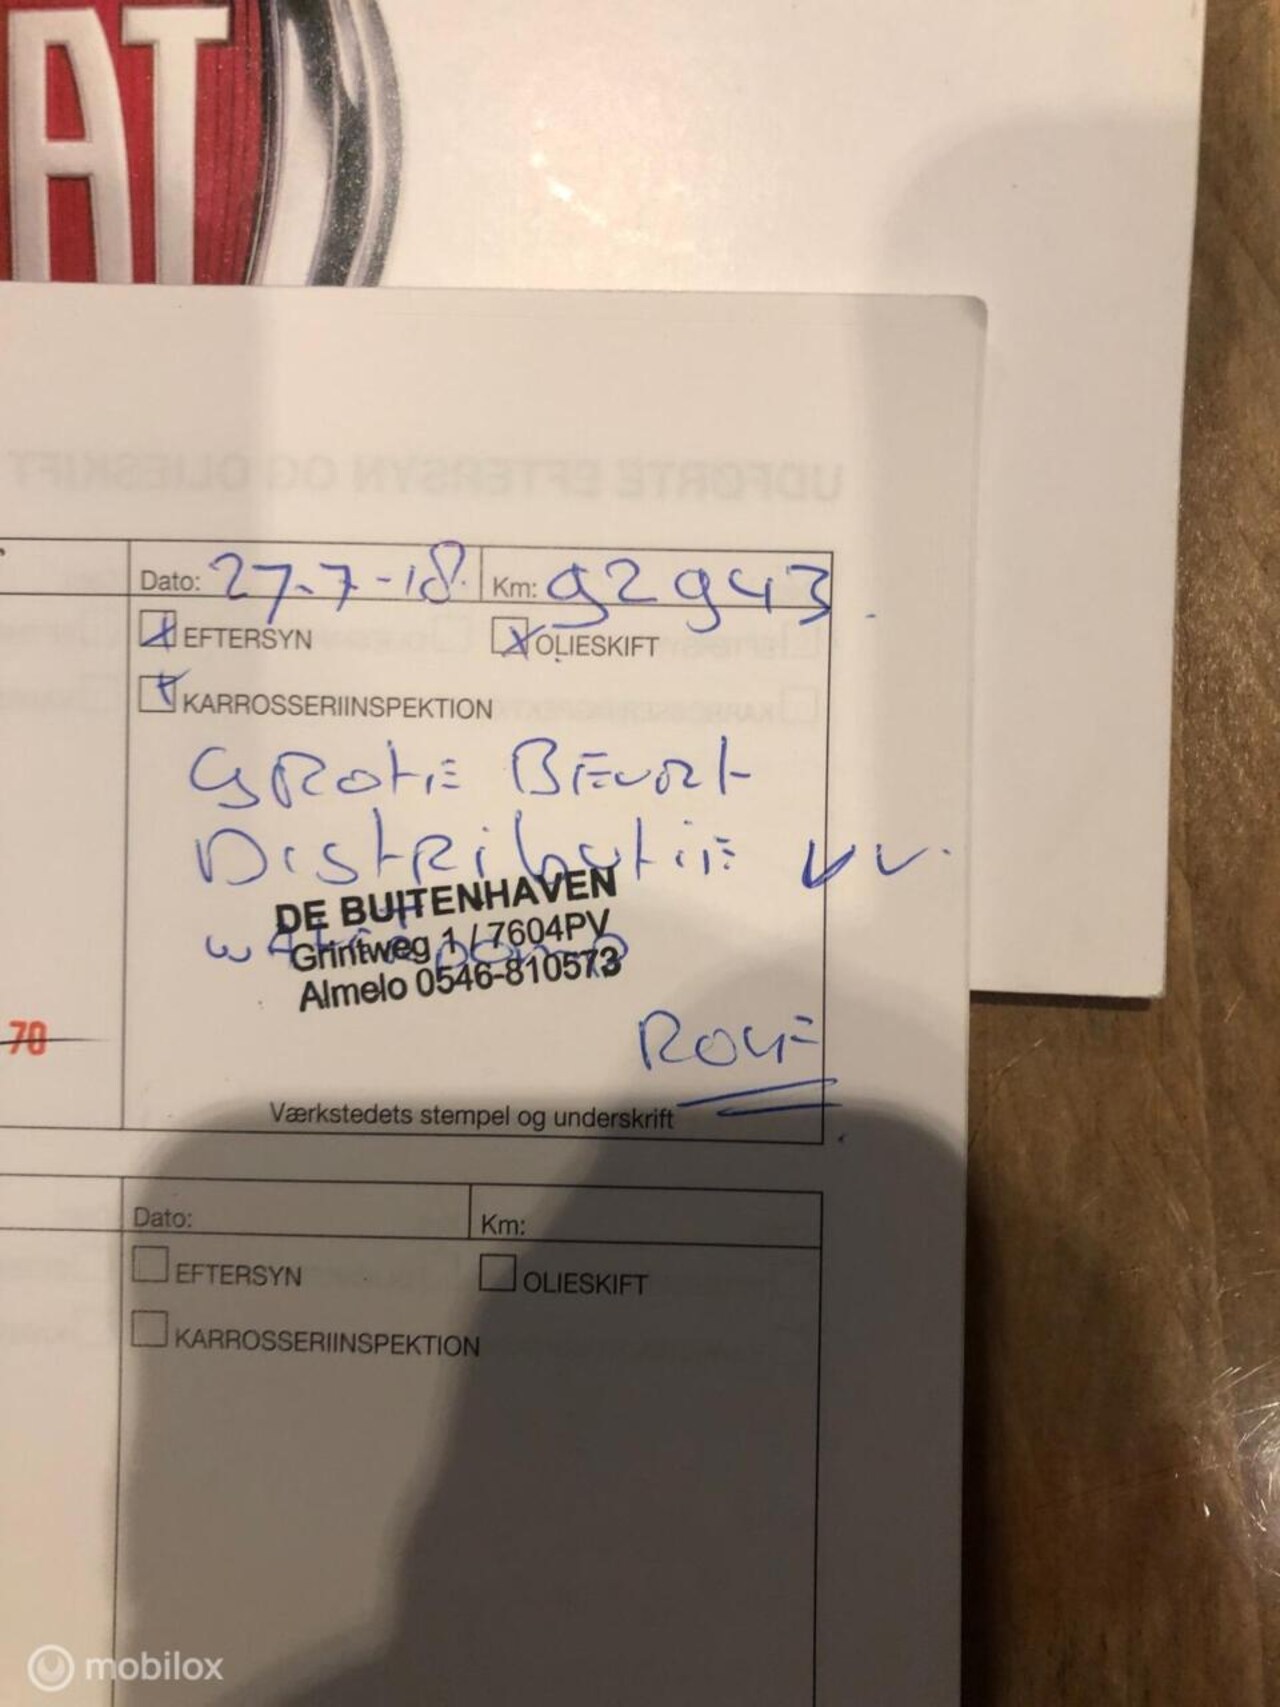 AT
UDFØRTE EFTERSYN OG OLIESKIFT
Dato: 27-7-18 Km: 92943
EFTERSYN OLIESKIFT
KARROSSERIINSPEKTION
GROTE BEURT
DISTRIBUTIE VV.
DE BUITENHAVEN
Grintweg 1 / 7604PV
Almelo 0546-810573
70
Værkstedets stempel og underskrift
Dato: Km:
EFTERSYN OLIESKIFT
KARROSSERIINSPEKTION
mobilox